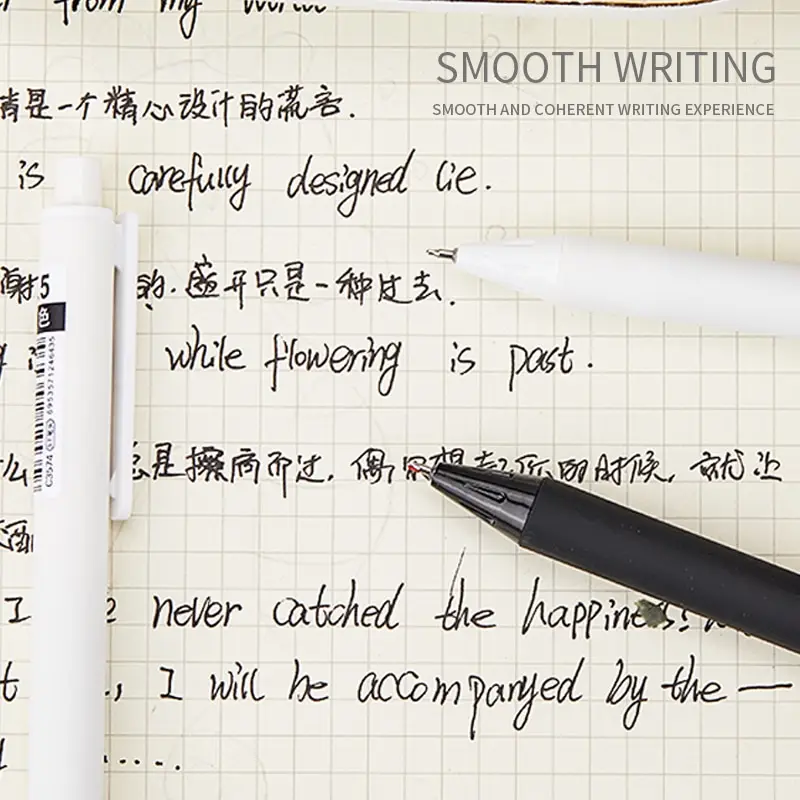 from my
SMOOTH WRITING
SMOOTH AND COHERENT WRITING EXPERIENCE
是一个精心设计的谎言.
is carefully designed lie.
谢 的. 盛开只是一种过去.
while flowering is past.
5
色
6953571246435
C3574
总是擦肩而过, 偶 想起 的时候, 就让
I never catched the happiness
I will be accompanyed by the —
.....